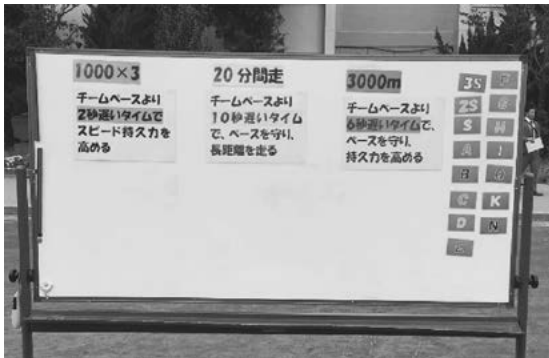 1000×3
チームペースより
2秒遅いタイムで
スピード持久力を
高める
20分間走
チームペースより
10秒遅いタイム
で、ペースを守り、
長距離を走る
3000m
チームペースより
6秒遅いタイムで、
ペースを守り、
持久力を高める
3S
2S
S H
A I
B
C K
D N